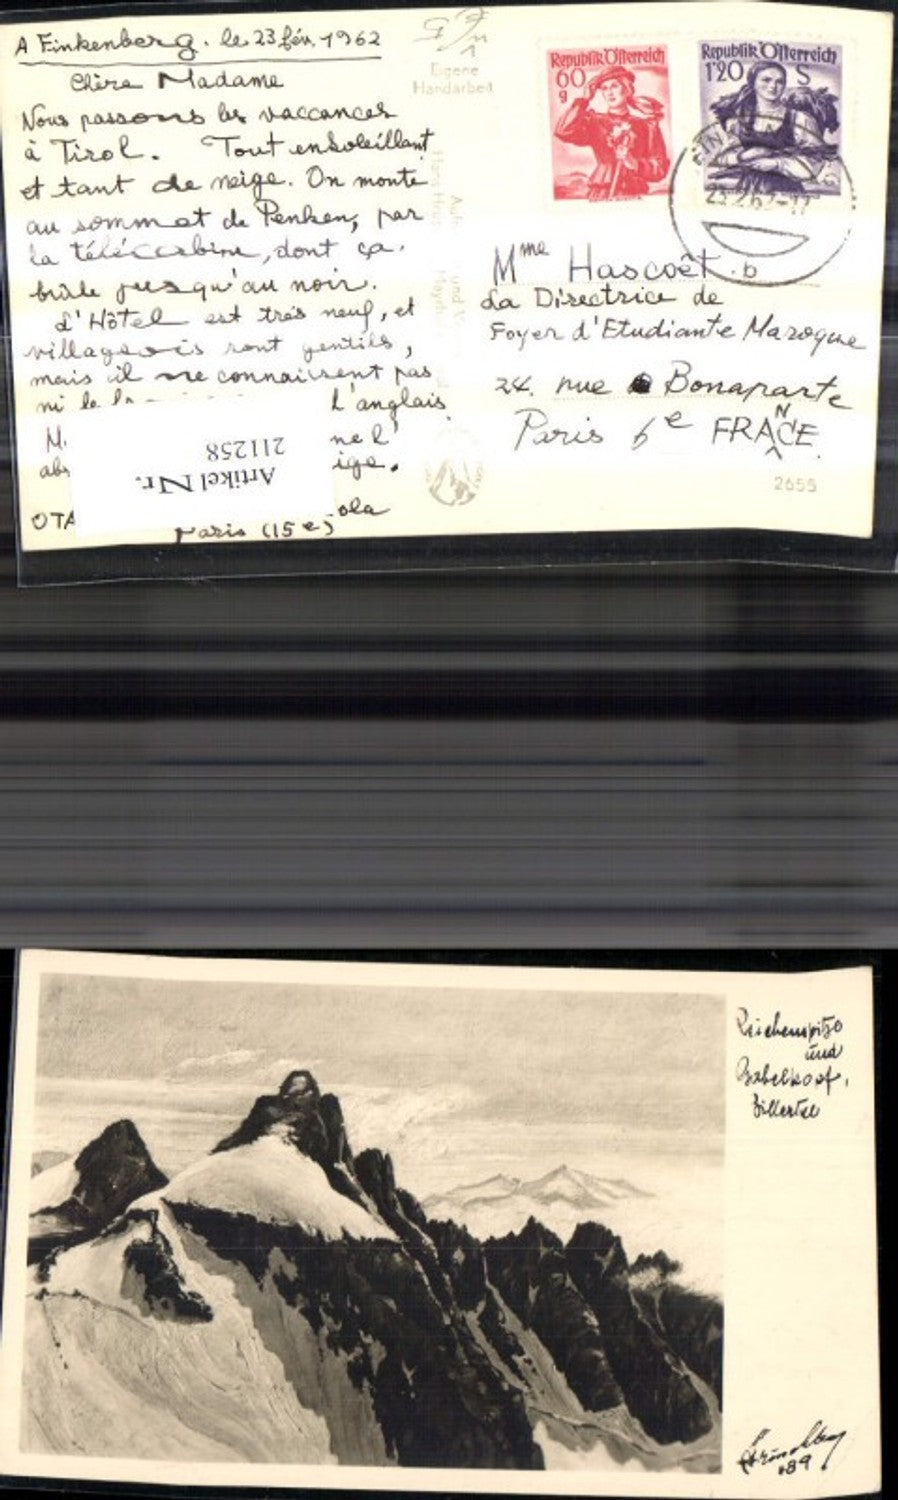 A Finkenberg. le 23 fév. 1962
Chère Madame
Nous passons les vaccances
à Tirol. Tout ensoleillant
et tant de neige. On monte
au sommet de Penken, par
la télécabine, dont ça.
brûle jusqu'au noir.
L'Hôtel est très neuf, et
villageois sont gentils,
mais il ne connaissent pas
ni le l'anglais.
M. ne l'
ige.
OTA ola
Paris (15e)
Artikel Nr.
211258
Eigene
Handarbeit
Republik Österreich
60
g
Republik Österreich
1'20 S
23.2.62-17
Mme Hascoêt.
La Directrice de
Foyer d'Etudiante Maroque
24. rue Bonaparte
Paris 6e FRANCE.
2655
Reichenspitze
und
Gabelkopf,
Zillertal
089